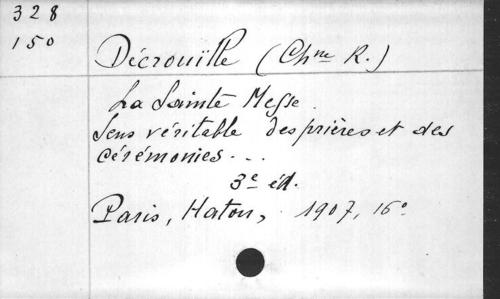 328
150
Décrouïlle (Chne R.)
La Sainte Messe.
Sens véritable des prières et des
cérémonies...
3e éd.
Paris, Haton, 1907, 16°